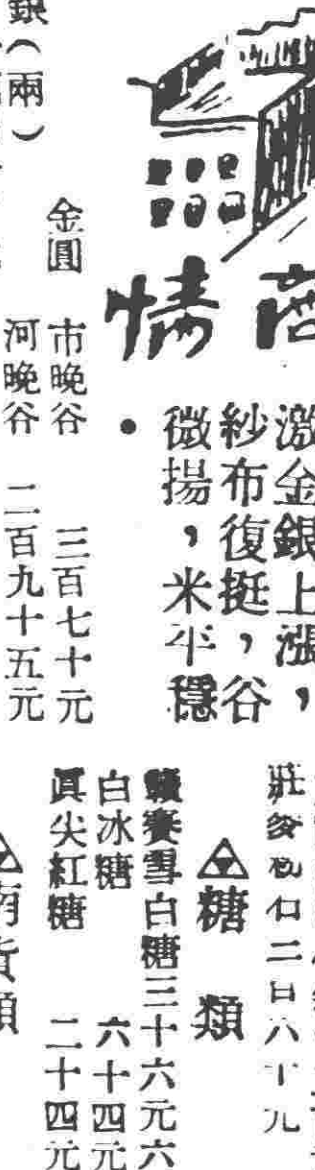 商情
激金銀上漲，
紗布復挺，谷
微揚，米平穩
•
金圓
市晚谷　三百七十元
河晚谷　二百九十五元
銀（兩）
糖類
贛賽雪白糖三十六元六
白冰糖　六十四元
眞尖紅糖　二十四元
南貨類